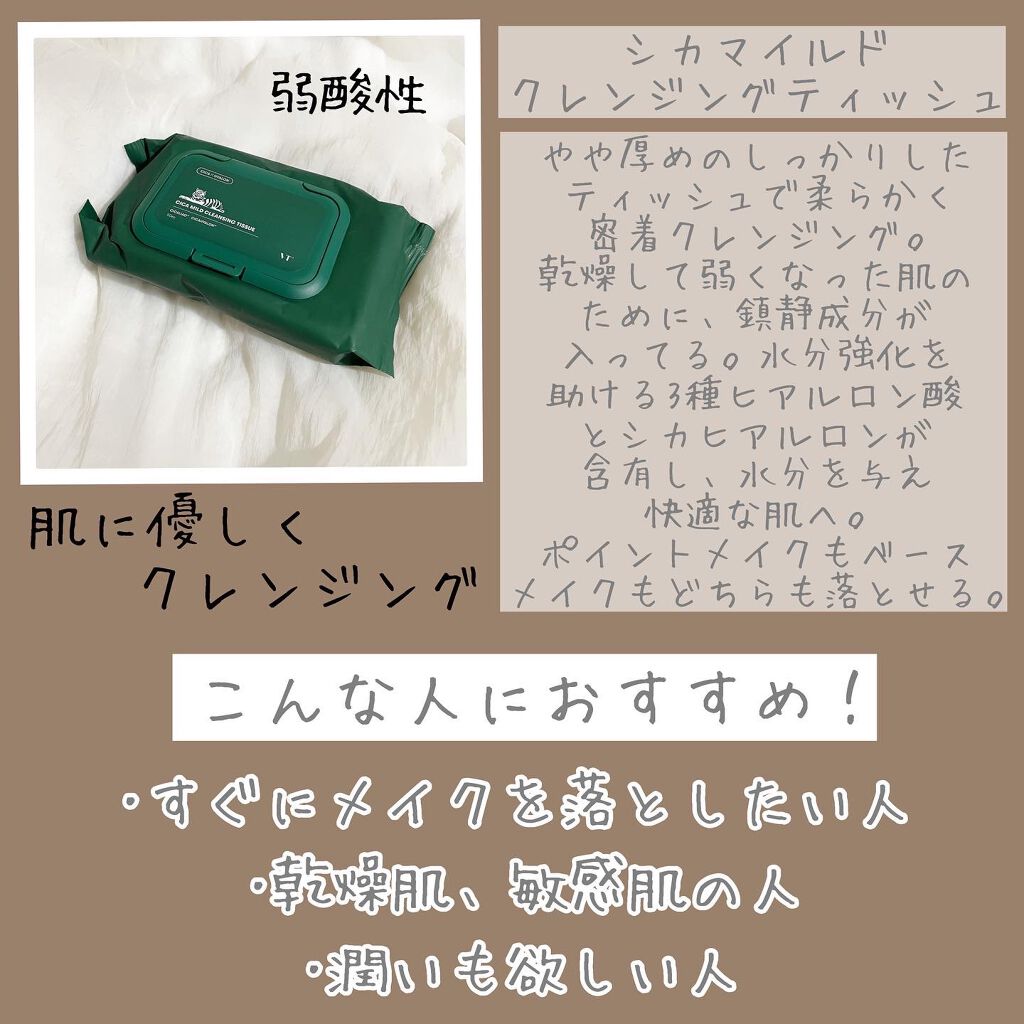 弱酸性
CICA × HYALON
CICA MILD CLEANSING TISSUE
VT
肌に優しく
クレンジング
シカマイルド
クレンジングティッシュ
やや厚めのしっかりした
ティッシュで柔らかく
密着クレンジング。
乾燥して弱くなった肌の
ために、鎮静成分が
入ってる。水分強化を
助ける3種ヒアルロン酸
とシカヒアルロンが
含有し、水分を与え
快適な肌へ。
ポイントメイクもベース
メイクもどちらも落とせる。
こんな人におすすめ!
・すぐにメイクを落としたい人
・乾燥肌、敏感肌の人
・潤いも欲しい人